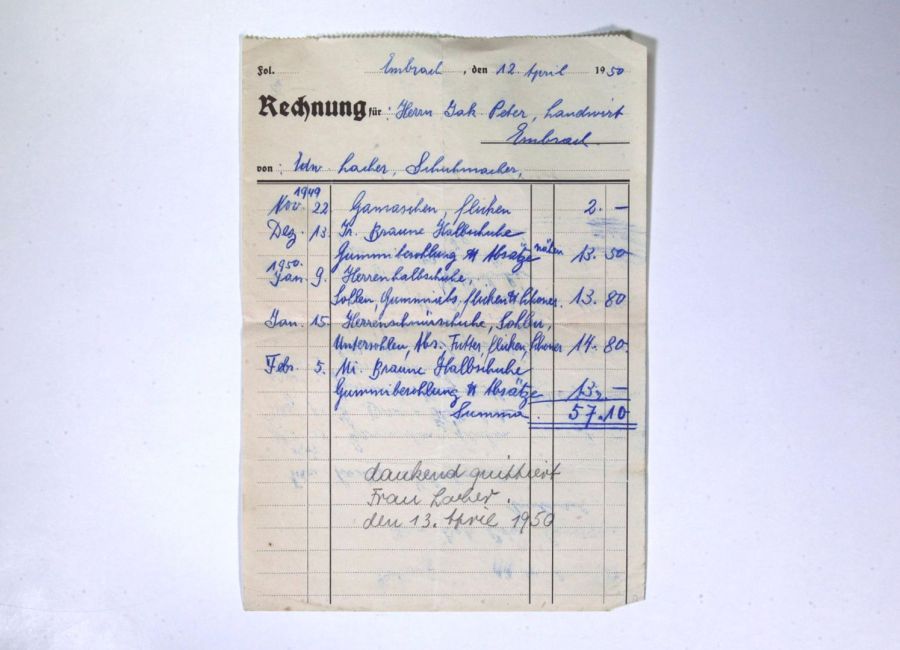 Fol. Embrach, den 12 April 1950
Rechnung für: Herrn Jak Peter, Landwirt
Embrach.
von: Edw Locher, Schuhmacher,
1949
Nov. 22 Gamaschen, flicken 2. —
Dez. 13. Fr. Braune Halbschuhe
Gummibesohlung & Absätze nähen 13. 50
1950.
Jan. 9. Herrenhalbschuhe
Sohlen, Gummiabs. flicken & 13. 80
Jan. 15. Herrenschnürschuhe, Sohlen,
Untersohlen, Abs. Futter, flicken, 14. 80.
Febr. 5. Mi. Braune Halbschuhe
Gummibesohlung & Absätze 13. —
Summa. 57.10
dankend quittiert
Frau Locher.
den 13. April 1950